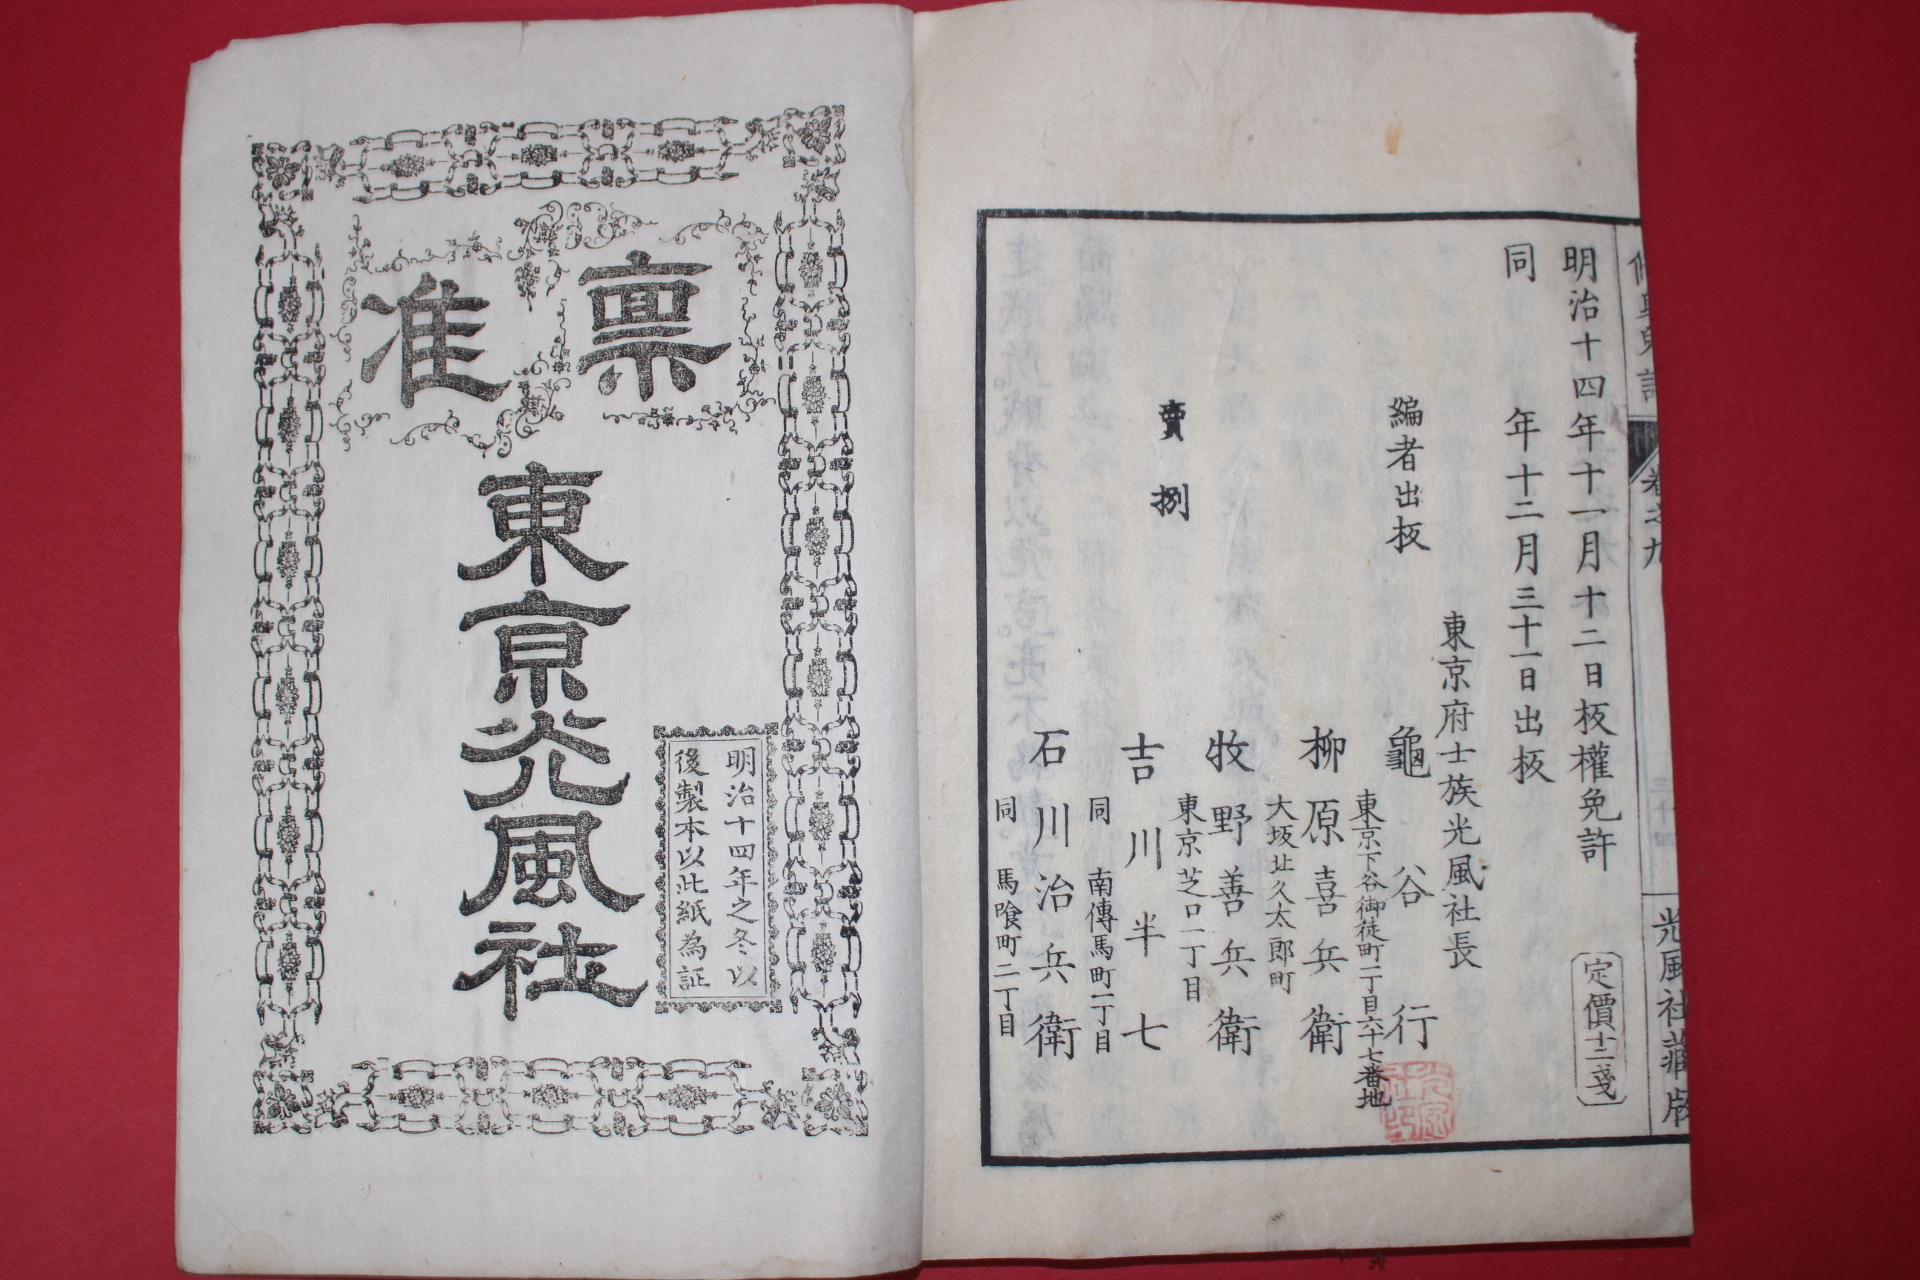 修身兒訓
卷之九
光風社藏版
明治十四年十一月十二日板權免許
同年十二月三十一日出板
定價十二戔
東京府士族光風社長
編者出板
龜谷行
東京下谷御徒町一丁目六十七番地
柳原喜兵衛
大坂北久太郎町
賣捌
牧野善兵衛
東京芝口一丁目
吉川半七
同南傳馬町一丁目
石川治兵衛
同馬喰町二丁目
稟准
東京光風社
明治十四年之冬以
後製本以此紙為証